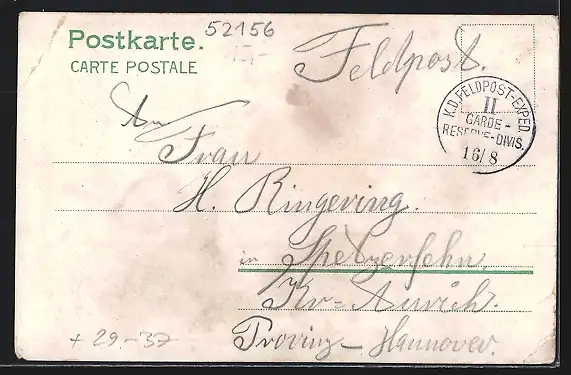 52156
Postkarte.
CARTE POSTALE
Feldpost.
K.D. FELDPOST-EXPED.
II
GARDE-
RESERVE-DIVIS.
16/8
An
Frau
H. Ringering.
in Spetzerfehn,
Kr=Aurich.
Provinz-Hannover.
+ 29-37